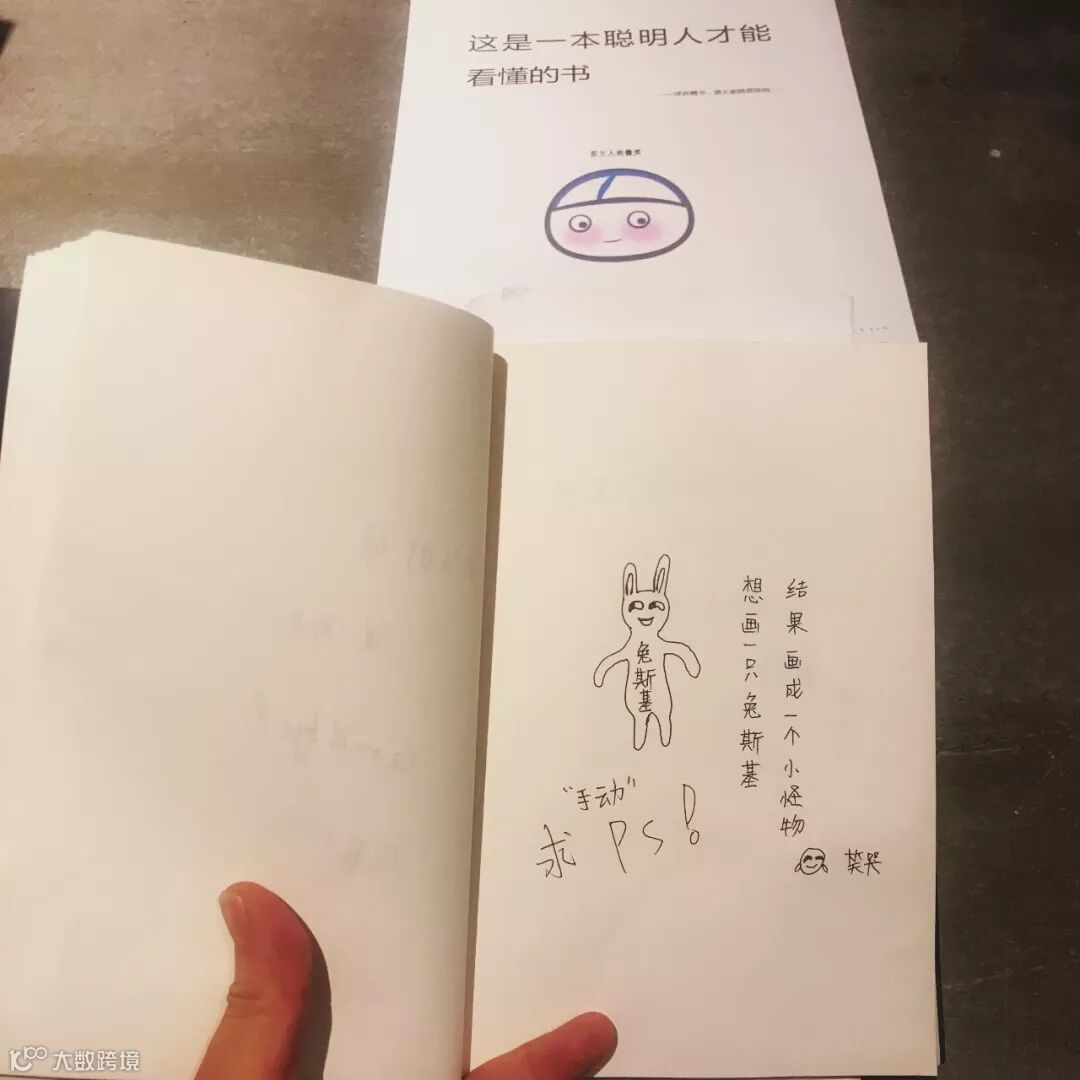 这是一本聪明人才能
看懂的书
芬兰人的微笑
兔斯基
想画一只兔斯基
结果画成一个小怪物
笑哭
“手动”
求PS!
大数跨境